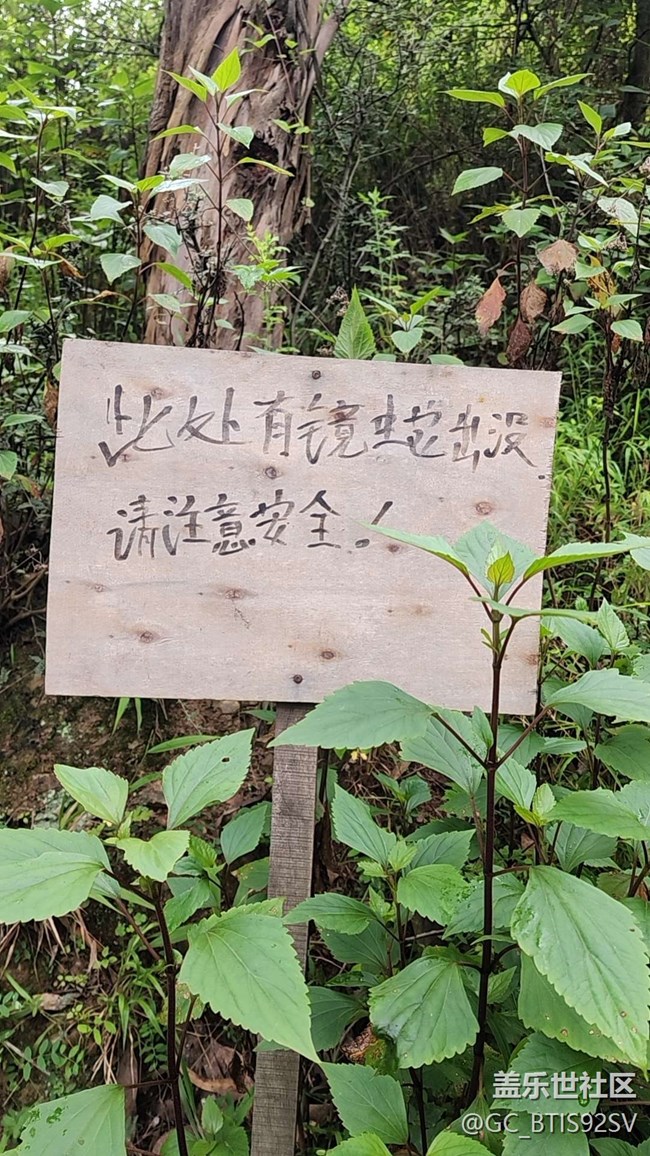 此处有镜蛇出没.
请注意安全!
盖乐世社区
@GC_BTIS92SV